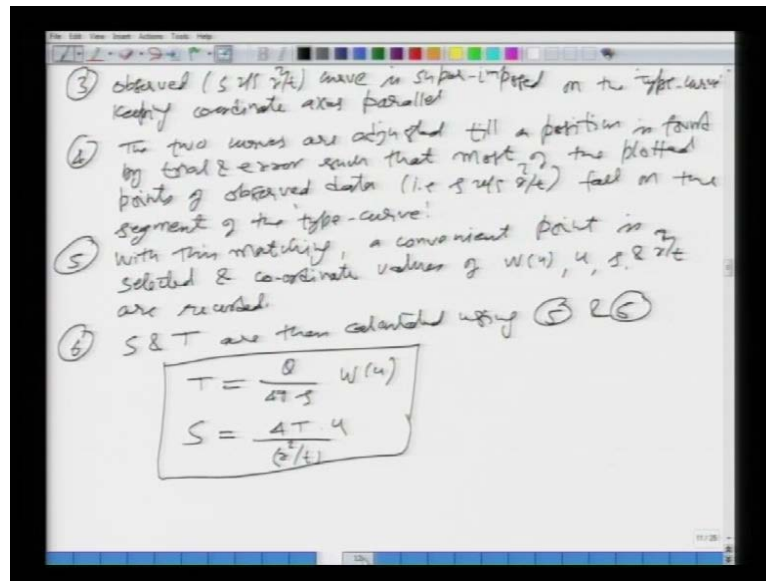 File Edit View Insert Actions Tools Help
③ observed (s v/s r²/t) curve is super-imposed on the 'type-curve'
keeping coordinate axes parallel
④ The two curves are adjusted till a position is found
by trial & error such that most of the plotted
points of observed data (i.e s v/s r²/t) fall on the
segment of the 'type-curve'.
⑤ With this matching, a convenient point is
selected & co-ordinate values of W(u), u, s, & r²/t
are recorded.
⑥ S & T are then calculated using ⑤ & ⑥
T = Q / 4π s W(u)
S = 4T u / (r²/t)
11 / 26